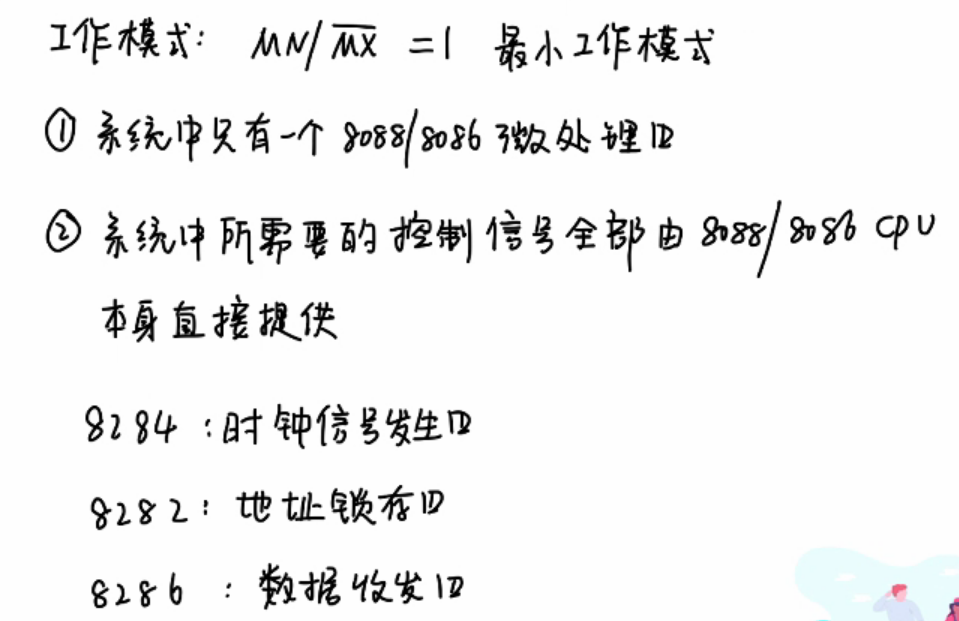 工作模式: MN/M̅X̅ =1 最小工作模式
① 系统中只有一个 8088/8086 微处理四
② 系统中所需要的控制信号全部由 8088/8086 CPU
本身直接提供
8284 :时钟信号发生四
8282: 地址锁存四
8286 : 数据收发四